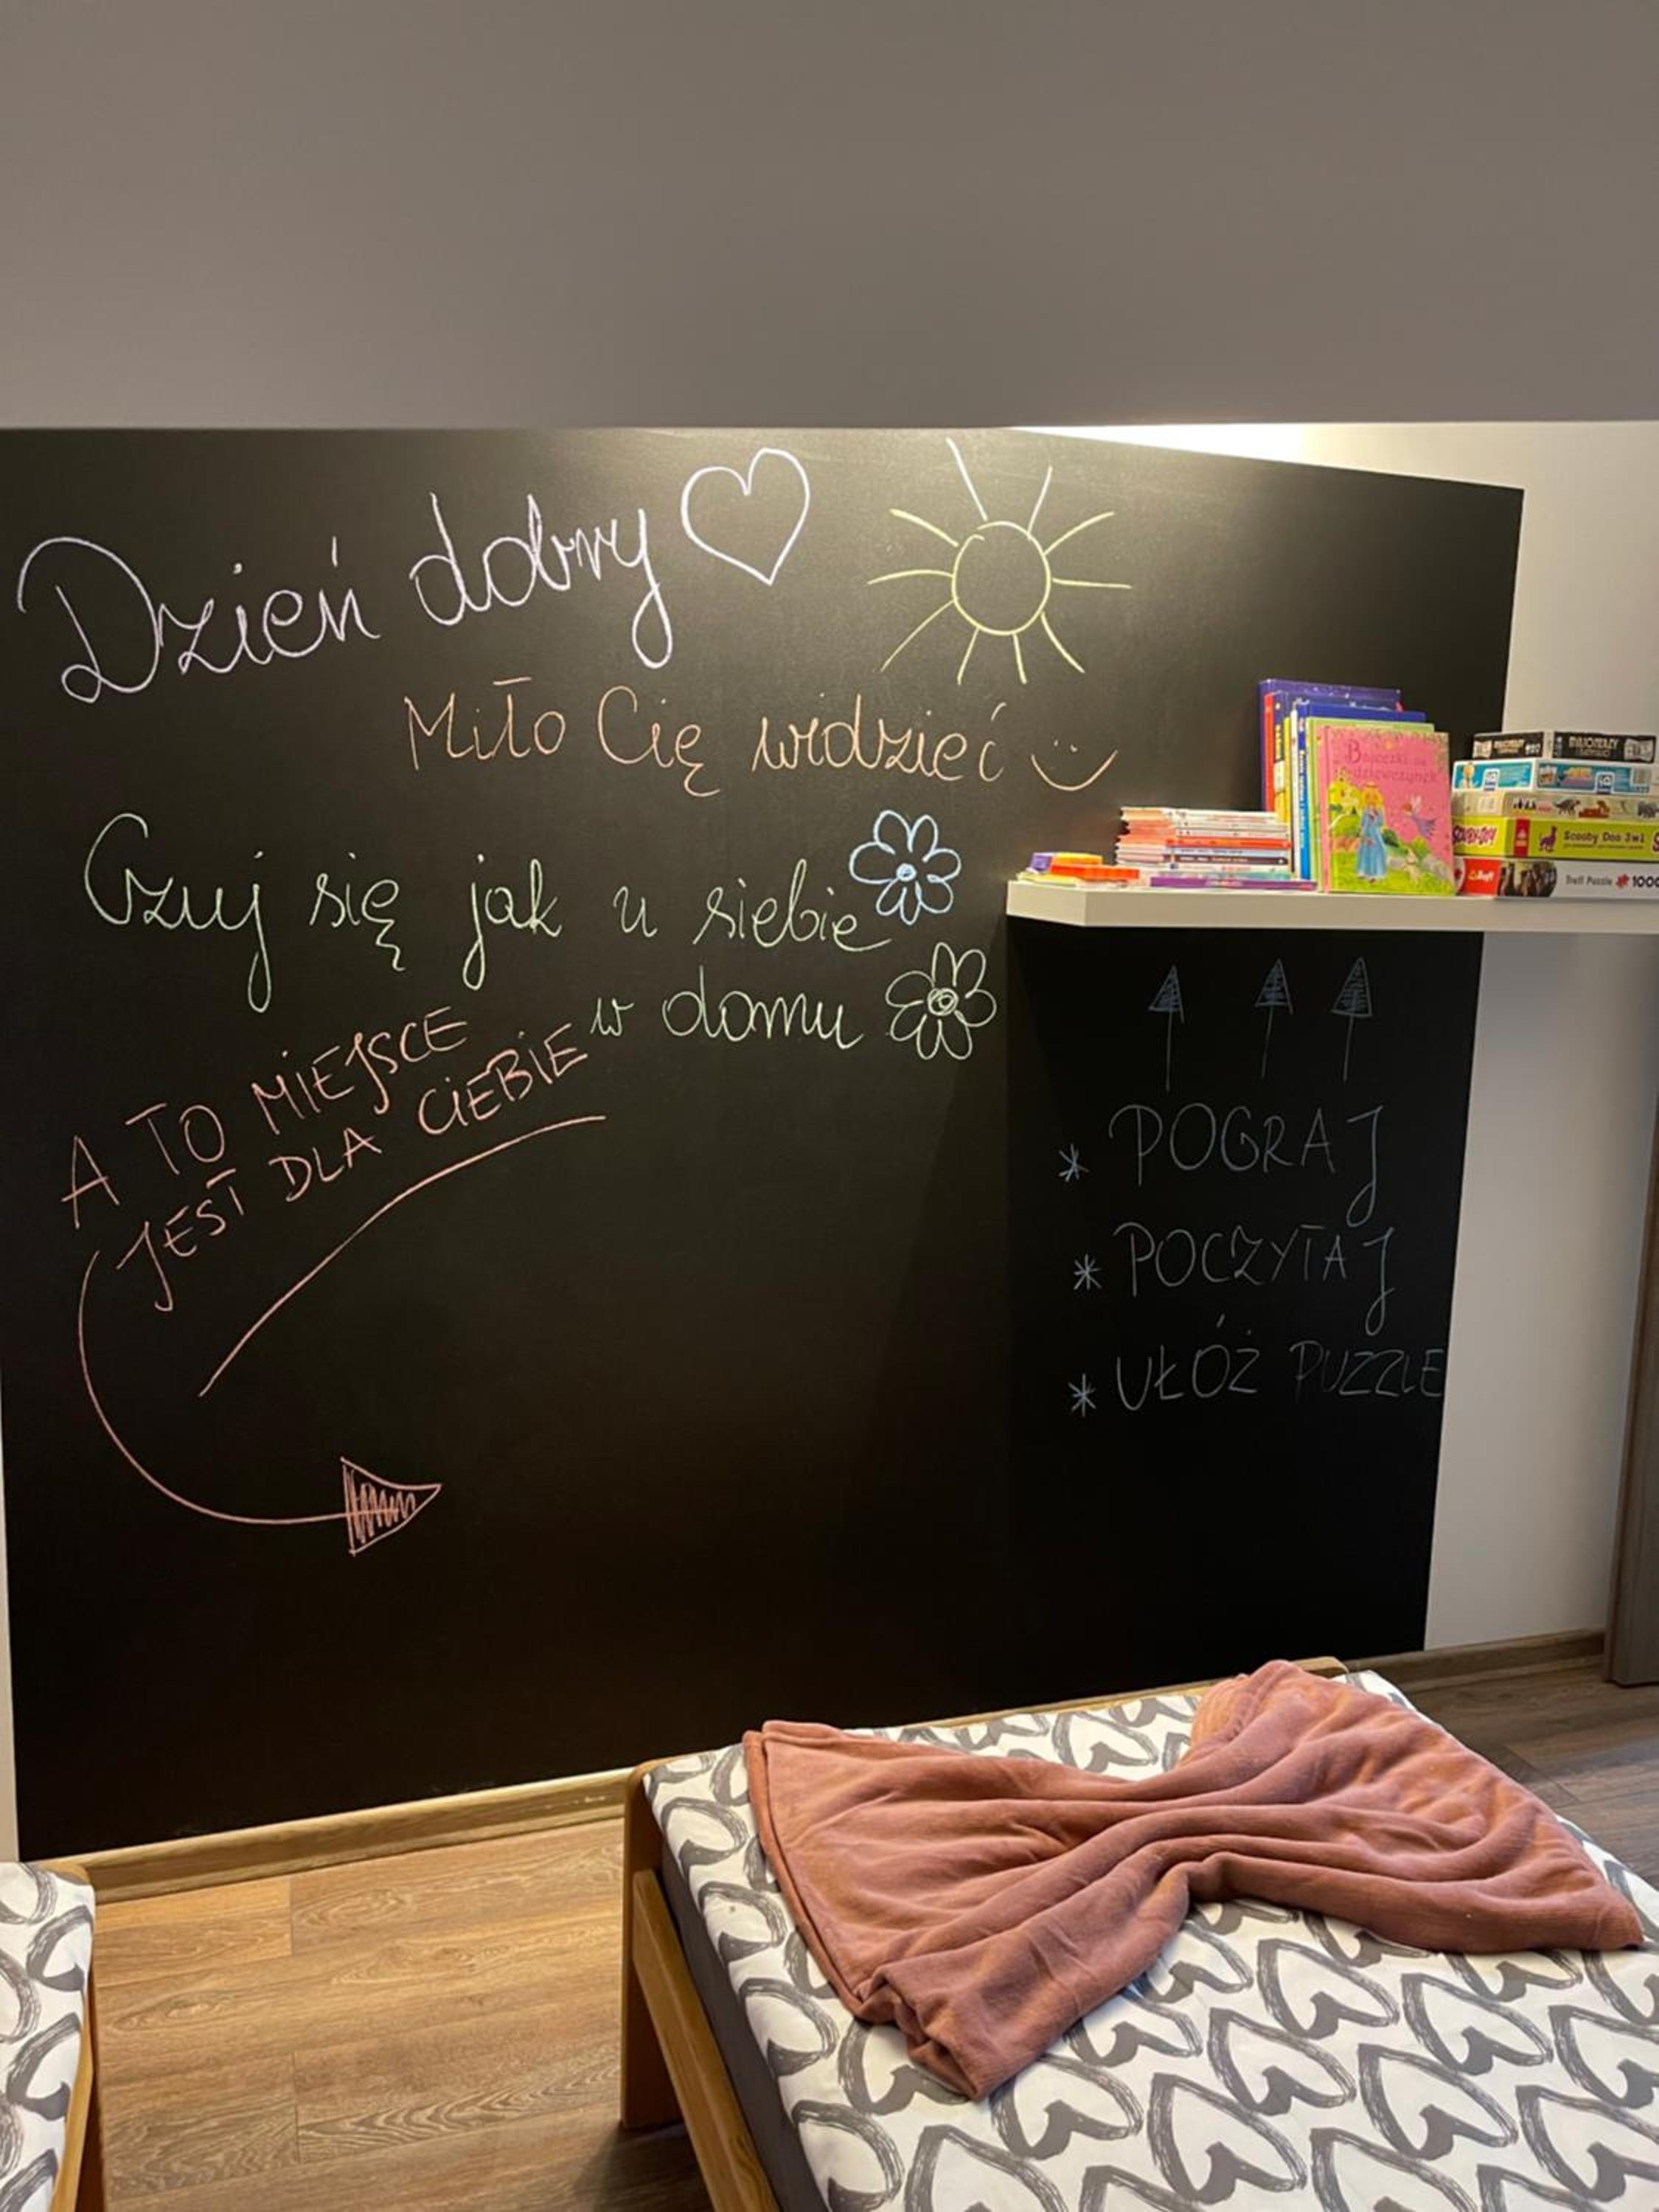 Dzień dobry
Miło Cię widzieć
Czuj się jak u siebie
w domu
A TO MIEJSCE
JEST DLA CIEBIE
* POGRAJ
* POCZYTAJ
* UŁÓŻ PUZZLE
Bajeczki dla
dziewczynek
MILIONERZY
SCOOBY-DOO!
Scooby Doo 3w1
Trefl
Trefl Puzzle 1000